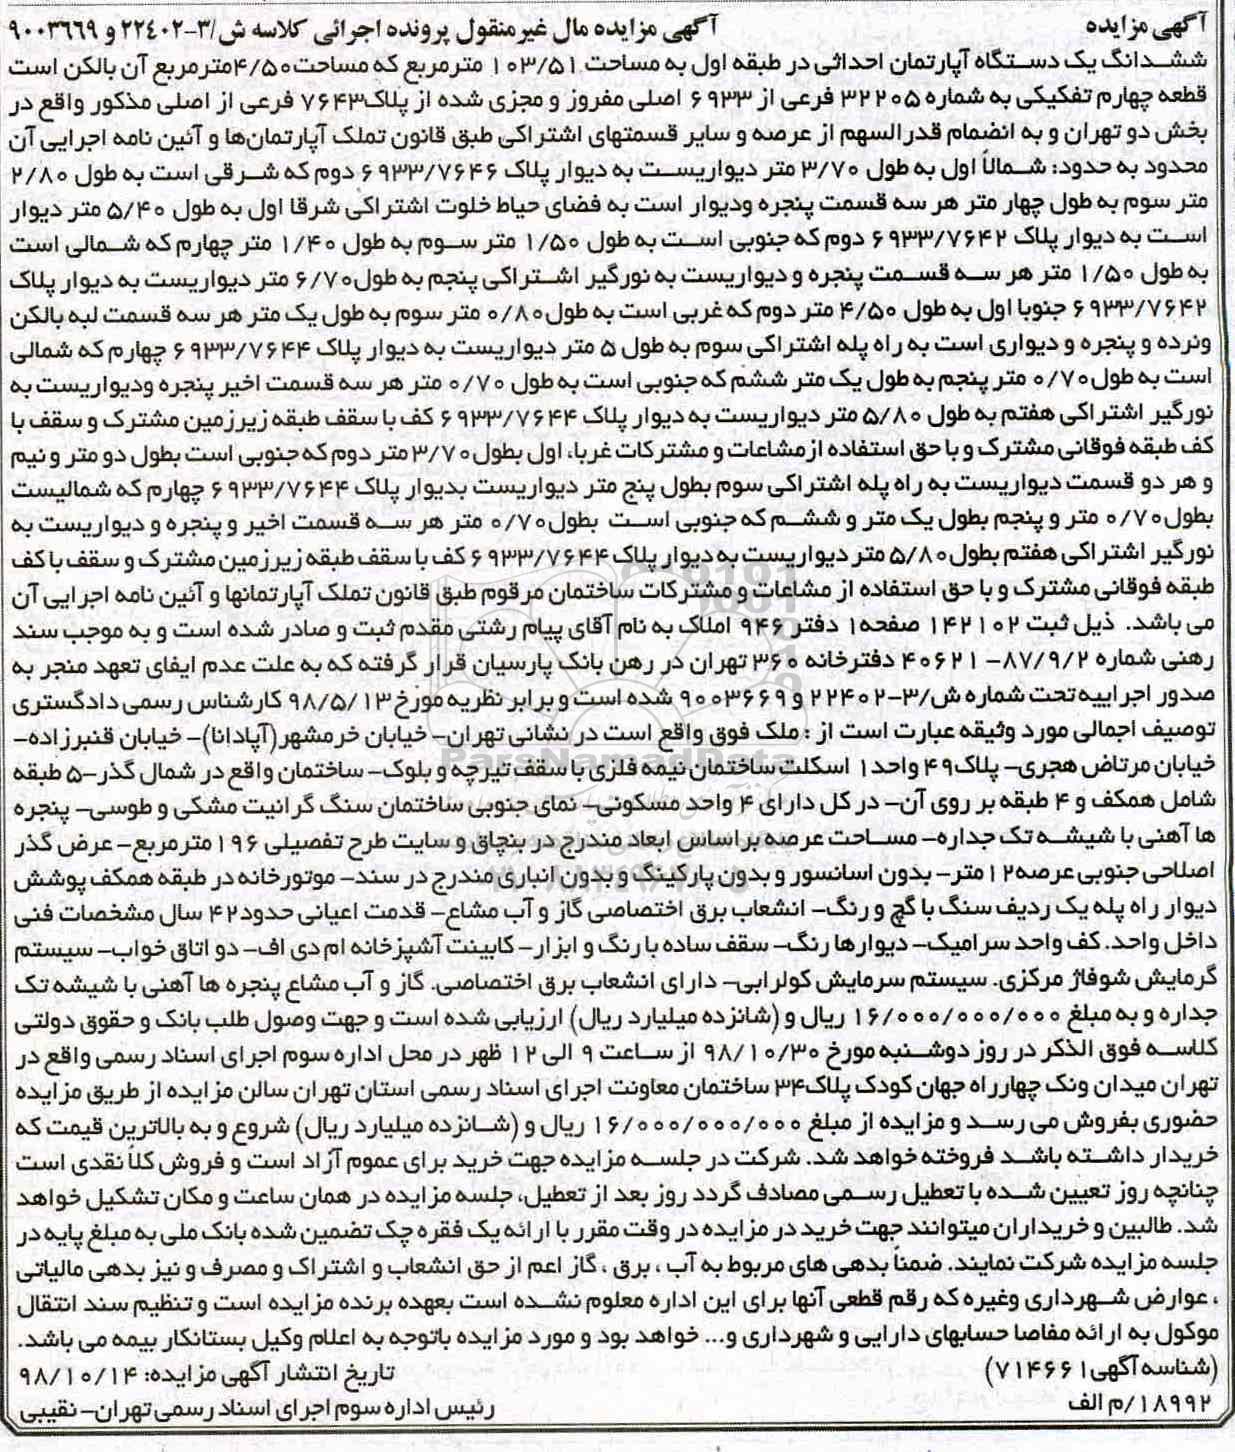 آگهی مزایده
آگهی مزایده مال غیرمنقول پرونده اجرائی کلاسه ش/۳-۲۲۴۰۲ و ۹۰۰۳۶۶۹
ششدانگ یک دستگاه آپارتمان احداثی در طبقه اول به مساحت ۱۰۳/۵۱ مترمربع که مساحت ۴/۵۰مترمربع آن بالکن است
قطعه چهارم تفکیکی به شماره ۳۲۲۰۵ فرعی از ۶۹۳۳ اصلی مفروز و مجزی شده از پلاک۷۶۴۳ فرعی از اصلی مذکور واقع در
بخش دو تهران و به انضمام قدرالسهم از عرصه و سایر قسمتهای اشتراکی طبق قانون تملک آپارتمان‌ها و آئین نامه اجرایی آن
محدود به حدود: شمالاً اول به طول ۳/۷۰ متر دیواریست به دیوار پلاک ۶۹۳۳/۷۶۴۶ دوم که شرقی است به طول ۲/۸۰
متر سوم به طول چهار متر هر سه قسمت پنجره ودیوار است به فضای حیاط خلوت اشتراکی شرقا اول به طول ۵/۴۰ متر دیوار
است به دیوار پلاک ۶۹۳۳/۷۶۴۲ دوم که جنوبی است به طول ۱/۵۰ متر سوم به طول ۱/۴۰ متر چهارم که شمالی است
به طول ۱/۵۰ متر هر سه قسمت پنجره و دیواریست به نورگیر اشتراکی پنجم به طول۶/۷۰ متر دیواریست به دیوار پلاک
۶۹۳۳/۷۶۴۲ جنوبا اول به طول ۴/۵۰ متر دوم که غربی است به طول۰/۸۰ متر سوم به طول یک متر هر سه قسمت لبه بالکن
ونرده و پنجره و دیواری است به راه پله اشتراکی سوم به طول ۵ متر دیواریست به دیوار پلاک ۶۹۳۳/۷۶۴۴ چهارم که شمالی
است به طول۰/۷۰ متر پنجم به طول یک متر ششم که جنوبی است به طول ۰/۷۰ متر هر سه قسمت اخیر پنجره ودیواریست به
نورگیر اشتراکی هفتم به طول ۵/۸۰ متر دیواریست به دیوار پلاک ۶۹۳۳/۷۶۴۴ کف با سقف طبقه زیرزمین مشترک و سقف با
کف طبقه فوقانی مشترک و با حق استفاده ازمشاعات و مشترکات غربا، اول بطول۳/۷۰ متر دوم که جنوبی است بطول دو متر و نیم
و هر دو قسمت دیواریست به راه پله اشتراکی سوم بطول پنج متر دیواریست بدیوار پلاک ۶۹۳۳/۷۶۴۴ چهارم که شمالیست
بطول۰/۷۰ متر و پنجم بطول یک متر و ششم که جنوبی است بطول۰/۷۰ متر هر سه قسمت اخیر و پنجره و دیواریست به
نورگیر اشتراکی هفتم بطول۵/۸۰ متر دیواریست به دیوار پلاک ۶۹۳۳/۷۶۴۴ کف با سقف طبقه زیرزمین مشترک و سقف با کف
طبقه فوقانی مشترک و با حق استفاده از مشاعات و مشترکات ساختمان مرقوم طبق قانون تملک آپارتمانها و آئین نامه اجرایی آن
می باشد. ذیل ثبت ۱۴۲۱۰۲ صفحه۱ دفتر ۹۴۶ املاک به نام آقای پیام رشتی مقدم ثبت و صادر شده است و به موجب سند
رهنی شماره ۸۷/۹/۲- ۴۰۶۲۱ دفترخانه ۳۶۰ تهران در رهن بانک پارسیان قرار گرفته که به علت عدم ایفای تعهد منجر به
صدور اجراییه تحت شماره ش/۳-۲۲۴۰۲ و ۹۰۰۳۶۶۹ شده است و برابر نظریه مورخ ۹۸/۵/۱۳ کارشناس رسمی دادگستری
توصیف اجمالی مورد وثیقه عبارت است از : ملک فوق واقع است در نشانی تهران- خیابان خرمشهر(آپادانا)- خیابان قنبرزاده-
خیابان مرتاض هجری- پلاک۴۹ واحد۱ اسکلت ساختمان نیمه فلزی با سقف تیرچه و بلوک- ساختمان واقع در شمال گذر-۵ طبقه
شامل همکف و ۴ طبقه بر روی آن- در کل دارای ۴ واحد مسکونی- نمای جنوبی ساختمان سنگ گرانیت مشکی و طوسی- پنجره
ها آهنی با شیشه تک جداره- مساحت عرصه براساس ابعاد مندرج در بنچاق و سایت طرح تفصیلی ۱۹۶ مترمربع- عرض گذر
اصلاحی جنوبی عرصه۱۲متر- بدون اسانسور و بدون پارکینگ و بدون انباری مندرج در سند- موتورخانه در طبقه همکف پوشش
دیوار راه پله یک ردیف سنگ با گچ و رنگ- انشعاب برق اختصاصی گاز و آب مشاع- قدمت اعیانی حدود۴۲ سال مشخصات فنی
داخل واحد. کف واحد سرامیک- دیوارها رنگ- سقف ساده با رنگ و ابزار- کابینت آشپزخانه ام دی اف- دو اتاق خواب- سیستم
گرمایش شوفاژ مرکزی. سیستم سرمایش کولرابی- دارای انشعاب برق اختصاصی. گاز و آب مشاع پنجره ها آهنی با شیشه تک
جداره و به مبلغ ۱۶/۰۰۰/۰۰۰/۰۰۰ ریال و (شانزده میلیارد ریال) ارزیابی شده است و جهت وصول طلب بانک و حقوق دولتی
کلاسه فوق الذکر در روز دوشنبه مورخ ۹۸/۱۰/۳۰ از ساعت ۹ الی ۱۲ ظهر در محل اداره سوم اجرای اسناد رسمی واقع در
تهران میدان ونک چهارراه جهان کودک پلاک۳۴ ساختمان معاونت اجرای اسناد رسمی استان تهران سالن مزایده از طریق مزایده
حضوری بفروش می رسد و مزایده از مبلغ ۱۶/۰۰۰/۰۰۰/۰۰۰ ریال و (شانزده میلیارد ریال) شروع و به بالاترین قیمت که
خریدار داشته باشد فروخته خواهد شد. شرکت در جلسه مزایده جهت خرید برای عموم آزاد است و فروش کلاً نقدی است
چنانچه روز تعیین شده با تعطیل رسمی مصادف گردد روز بعد از تعطیل، جلسه مزایده در همان ساعت و مکان تشکیل خواهد
شد. طالبین و خریداران میتوانند جهت خرید در مزایده در وقت مقرر با ارائه یک فقره چک تضمین شده بانک ملی به مبلغ پایه در
جلسه مزایده شرکت نمایند. ضمناً بدهی های مربوط به آب ، برق ، گاز اعم از حق انشعاب و اشتراک و مصرف و نیز بدهی مالیاتی
، عوارض شهرداری وغیره که رقم قطعی آنها برای این اداره معلوم نشده است بعهده برنده مزایده است و تنظیم سند انتقال
موکول به ارائه مفاصا حسابهای دارایی و شهرداری و... خواهد بود و مورد مزایده باتوجه به اعلام وکیل بستانکار بیمه می باشد.
(شناسه آگهی۷۱۴۶۶۱)
تاریخ انتشار آگهی مزایده: ۹۸/۱۰/۱۴
۱۸۹۹۲/م الف
رئیس اداره سوم اجرای اسناد رسمی تهران- نقیبی
ParsNamadData